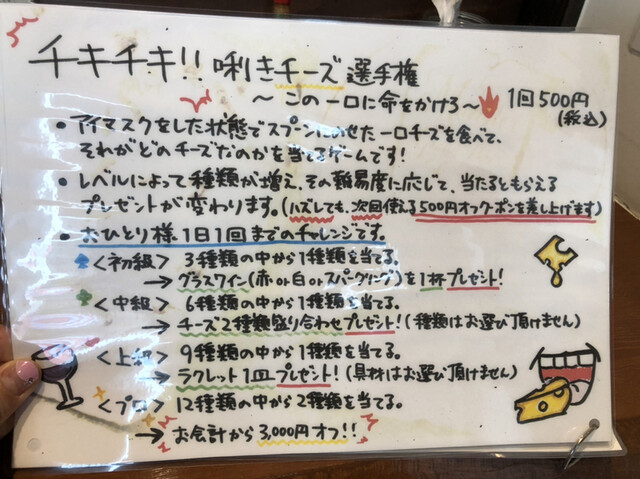 チキチキ!! 唎きチーズ選手権
～この一口に命をかけろ～ 1回500円
(税込)
• アイマスクをした状態でスプーンにのせた一口チーズを食べて、
それがどのチーズなのかを当てるゲームです!
• レベルによって種類が増え、その難易度に応じて、当たるともらえる
プレゼントが変わります。(ハズレても、次回使える500円オフクーポンを差し上げます)
• おひとり様1日1回までのチャレンジです。
<初級> 3種類の中から1種類を当てる。
→ グラスワイン(赤or白orスパークリング)を1杯プレゼント!
<中級> 6種類の中から1種類を当てる。
→ チーズ2種類盛り合わせプレゼント!(種類はお選び頂けません)
<上級> 9種類の中から1種類を当てる。
→ ラクレット1皿プレゼント!(具材はお選び頂けません)
<プロ> 12種類の中から2種類を当てる。
→ お会計から3,000円オフ!!